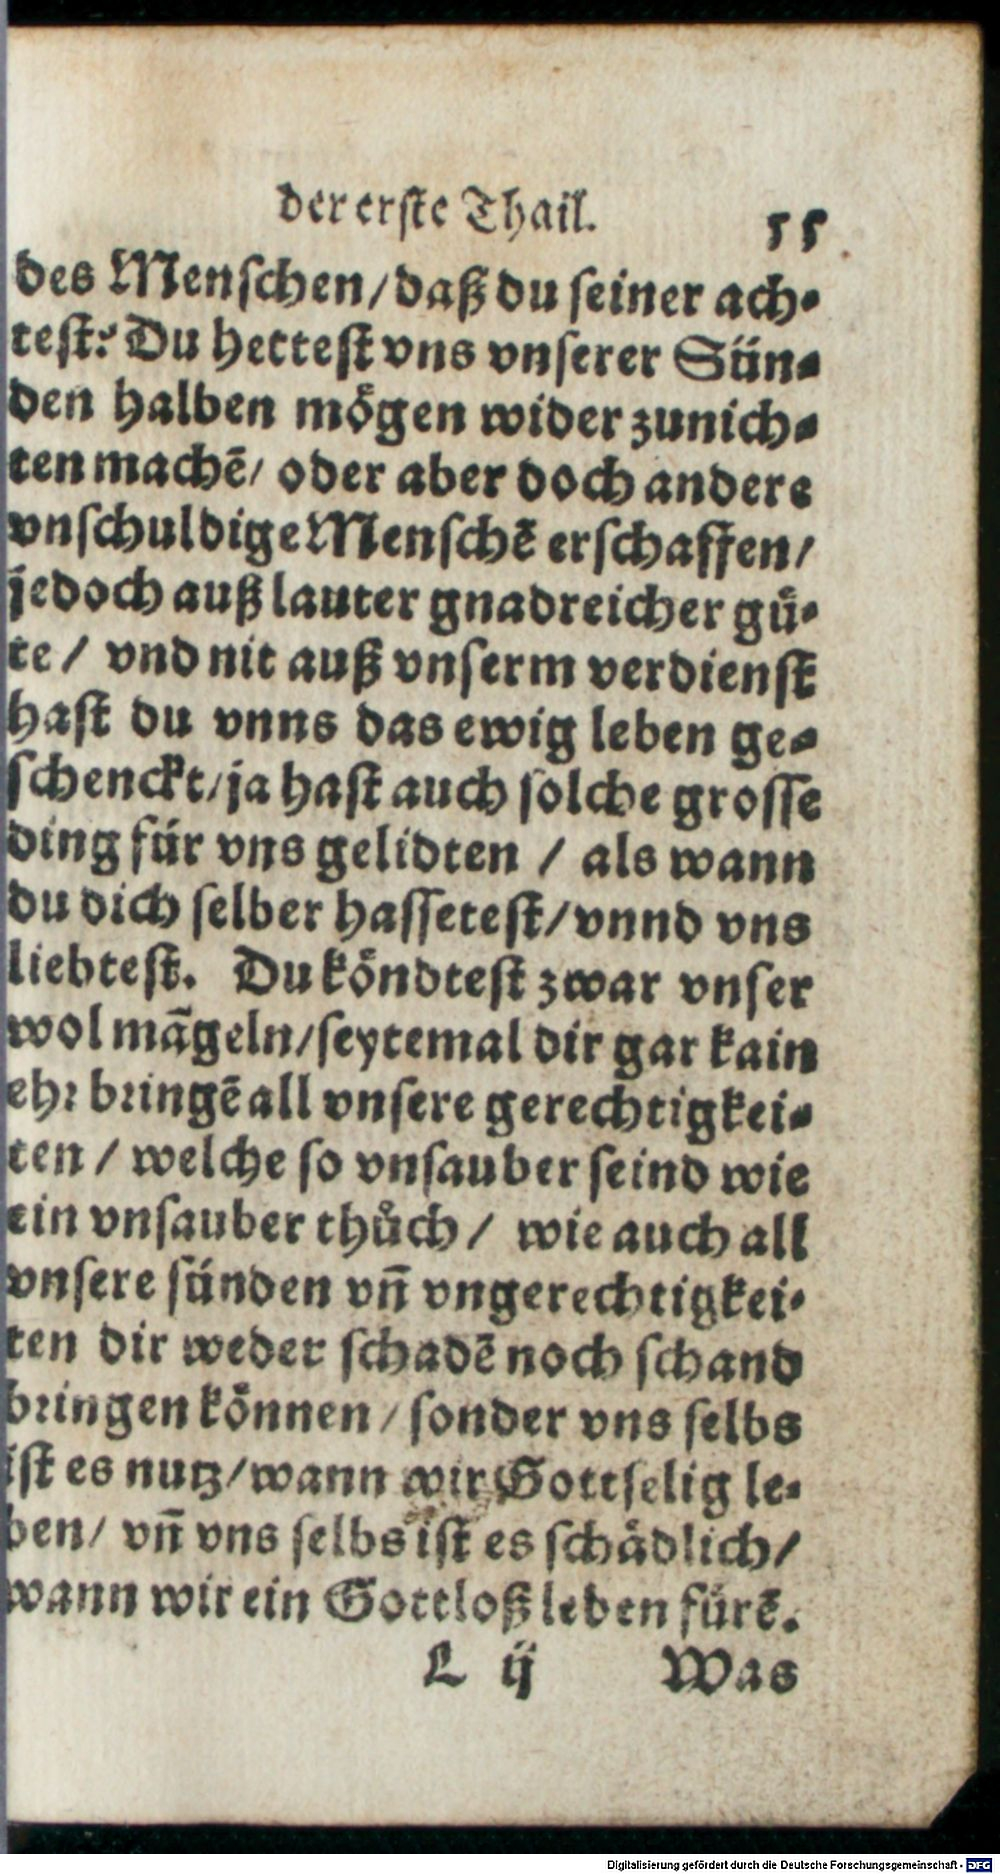 der erste Thail. 55
des Menschen/ daß du seiner ach-
test? Du hettest vns vnserer Sün-
den halben mögen wider zunich-
ten machē/ oder aber doch andere
vnschuldige Menschē erschaffen/
jedoch auß lauter gnadreicher gü-
te / vnd nit auß vnserm verdienst
hast du vnns das ewig leben ge-
schenckt/ ja hast auch solche grosse
ding für vns gelidten / als wann
du dich selber hassetest/ vnnd vns
liebtest. Du köndtest zwar vnser
wol mãgeln/ seytemal dir gar kain
ehr bringē all vnsere gerechtigkei-
ten / welche so vnsauber seind wie
ein vnsauber thůch / wie auch all
vnsere sünden vñ vngerechtigkei-
ten dir weder schadē noch schand
bringen können / sonder vns selbs
ist es nutz/ wann wir Gottselig le-
ben/ vñ vns selbs ist es schädlich/
wann wir ein Gottloß leben fürē.
L ij Was
Digitalisierung gefördert durch die Deutsche Forschungsgemeinschaft - DFG